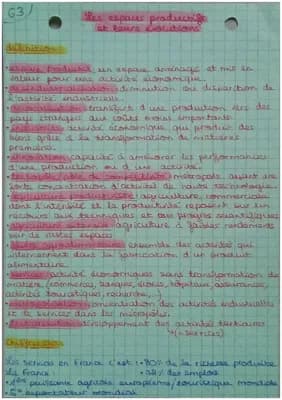 G3/
Les espaces productifs
et leurs évolutions
définitions
• espace productif un espace aménagé et mis en
valeur pour une activité économique.
• désindustrialisation diminution ou disparition de
l'activité industrielle
• délocalisation transfert d'une production vers des
pays étrangers aux coûts moins importants
• industrie activité économique qui produit des
biens grâce à la transformation de matières
premières.
• innovation capacité d'améliorer les performances
d'une production ou d'une activité.
• métropole ayant une
forte concentration d'activité de haute technologie.
• agriculture productiviste agriculture commerciale
dont l'intensité et la productivité reposent sur les
recours aux techniques et aux progrès scientifiques
• agriculture extensive agriculture à faibles rendements
sur de vastes espaces
• ensemble des activités qui
interviennent dans la fabrication d'un produit
alimentaire.
• services activité économiques sans transformation de
matière (commerces, banques, écoles, hôpitaux, assurances,
activités touristiques, recherche, ..)
• concentration des activités industrielles
et de services dans les métropoles.
• développement des activités tertiaires
(= services)
Les services en France c'est : • 80% de la richesse produite
La France
• 1ère puissance agricole européenne/touristique mondiale
• 5e exportateur mondial